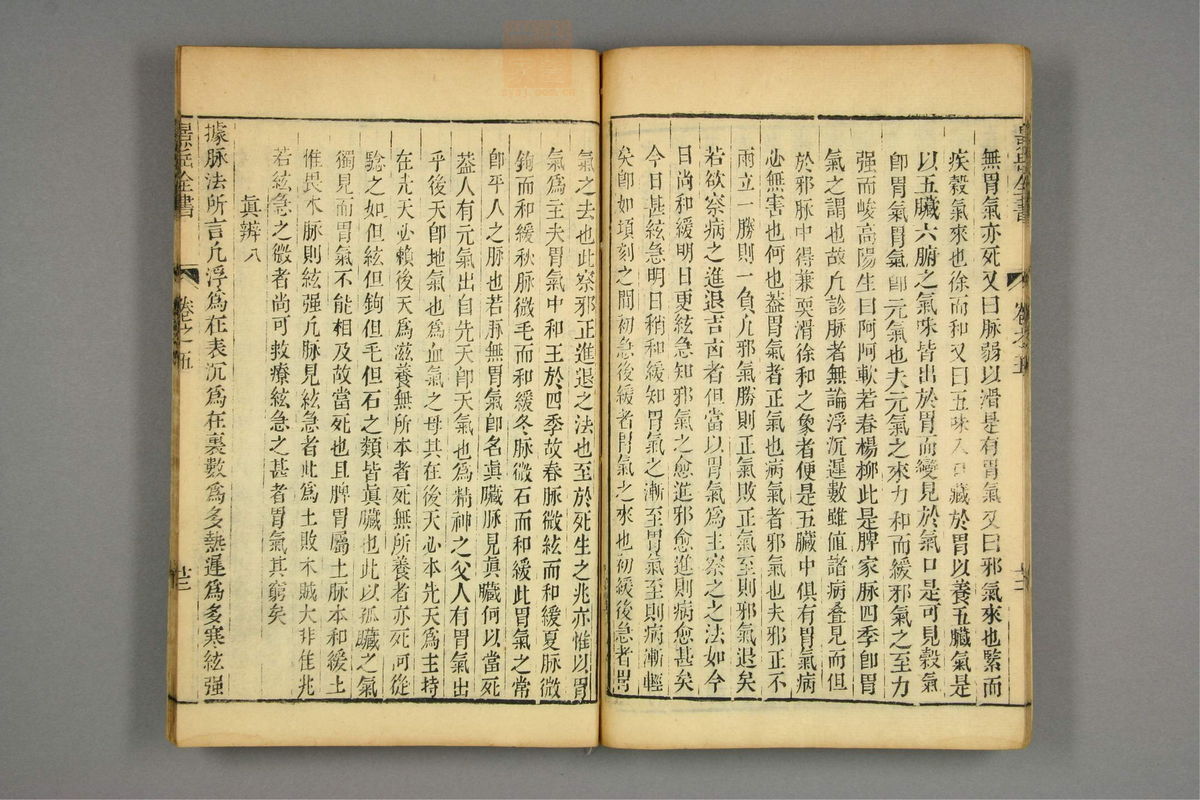 無胃氣亦死又曰脉弱以滑是有胃氣又曰邪氣來也緊而
疾穀氣來也徐而和又曰五味入口藏於胃以養五臟氣是
以五臟六腑之氣味皆出於胃而變見於氣口是可見穀氣
卽胃氣胃氣卽元氣也夫元氣之來力和而緩邪氣之至力
强而峻高陽生曰阿阿軟若春楊栁此是脾家脉四季卽胃
氣之謂也故凡診脉者無論浮沉遲數雖值諸病叠見而但
於邪脉中得兼耎滑徐和之象者便是五臟中俱有胃氣病
必無害也何也葢胃氣者正氣也病氣者邪氣也夫邪正不
兩立一勝則一負凡邪氣勝則正氣敗正氣至則邪氣退矣
若欲察病之進退吉凶者但當以胃氣爲主察之之法如今
日尚和緩明日更絃急知邪氣之愈進邪愈進則病愈甚矣
今日甚絃急明日稍和緩知胃氣之漸至胃氣至則病漸輕
矣卽如頃刻之間初急後緩者胃氣之來也初緩後急者胃
景岳全書
卷之五
氣之去也此察邪正進退之法也至於死生之兆亦惟以胃
氣爲主夫胃氣中和王於四季故春脉微絃而和緩夏脉微
鉤而和緩秋脉微毛而和緩冬脉微石而和緩此胃氣之常
卽平人之脉也若脉無胃氣卽名眞臟脉見眞臟何以當死
葢人有元氣出自先天卽天氣也爲精神之父人有胃氣出
乎後天卽地氣也爲血氣之母其在後天必本先天爲主持
在先天必賴後天爲滋養無所本者死無所養者亦死何從
騐之如但絃但鉤但毛但石之類皆眞臟也此以孤臟之氣
獨見而胃氣不能相及故當死也且脾胃屬土脉本和緩土
惟畏木脉則絃强凡脉見絃急者此爲土敗木賊大非佳兆
若絃急之微者尚可救療絃急之甚者胃氣其窮矣
眞辨八
據脉法所言凡浮爲在表沉爲在裏數爲多熱遲爲多寒絃强
景岳全書
卷之五
廿三